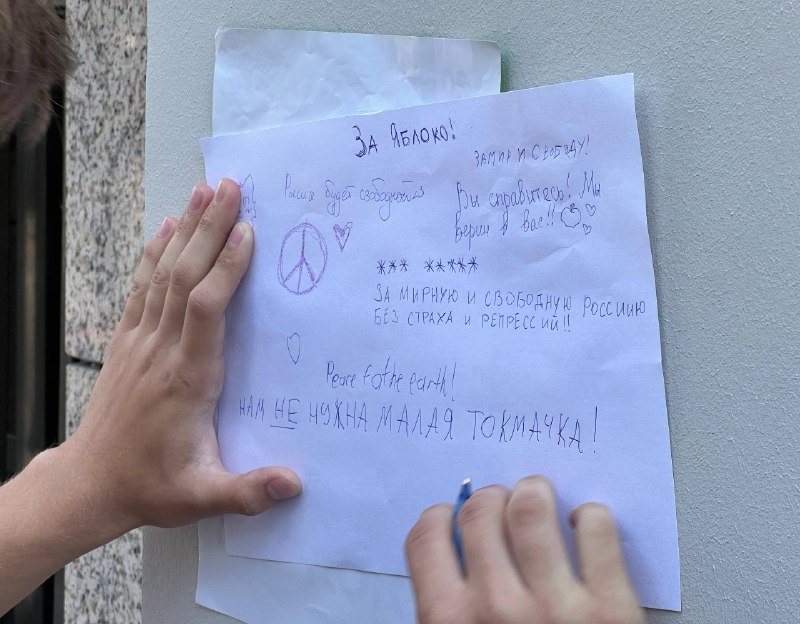 За Яблоко!
ЗА МИР И СВОБОДУ!
Россия будет свободной <3
Вы справитесь! Мы
верим в вас!!
*** *****
ЗА МИРНУЮ И СВОБОДНУЮ РОССИЮ
БЕЗ СТРАХА И РЕПРЕССИЙ!!
Peace to the earth!
НАМ НЕ НУЖНА МАЛАЯ ТОКМАЧКА!